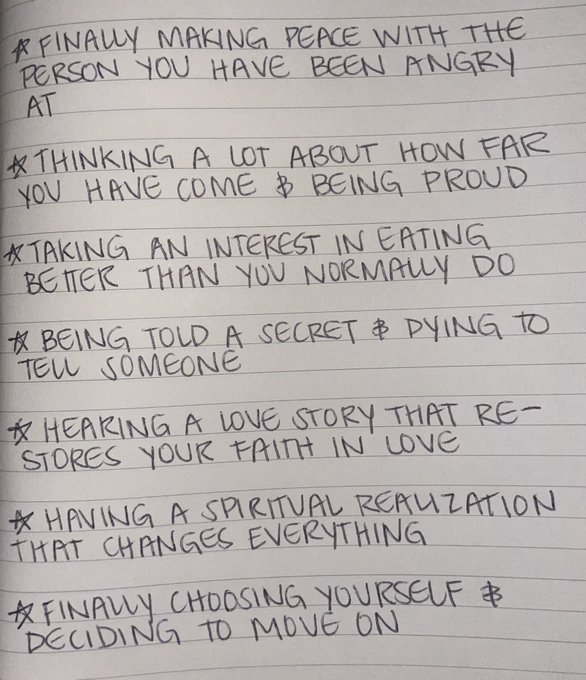 ☆ FINALLY MAKING PEACE WITH THE
PERSON YOU HAVE BEEN ANGRY
AT
☆ THINKING A LOT ABOUT HOW FAR
YOU HAVE COME & BEING PROUD
☆ TAKING AN INTEREST IN EATING
BETTER THAN YOU NORMALLY DO
☆ BEING TOLD A SECRET & DYING TO
TELL SOMEONE
☆ HEARING A LOVE STORY THAT RE-
STORES YOUR FAITH IN LOVE
☆ HAVING A SPIRITUAL REALIZATION
THAT CHANGES EVERYTHING
☆ FINALLY CHOOSING YOURSELF &
DECIDING TO MOVE ON